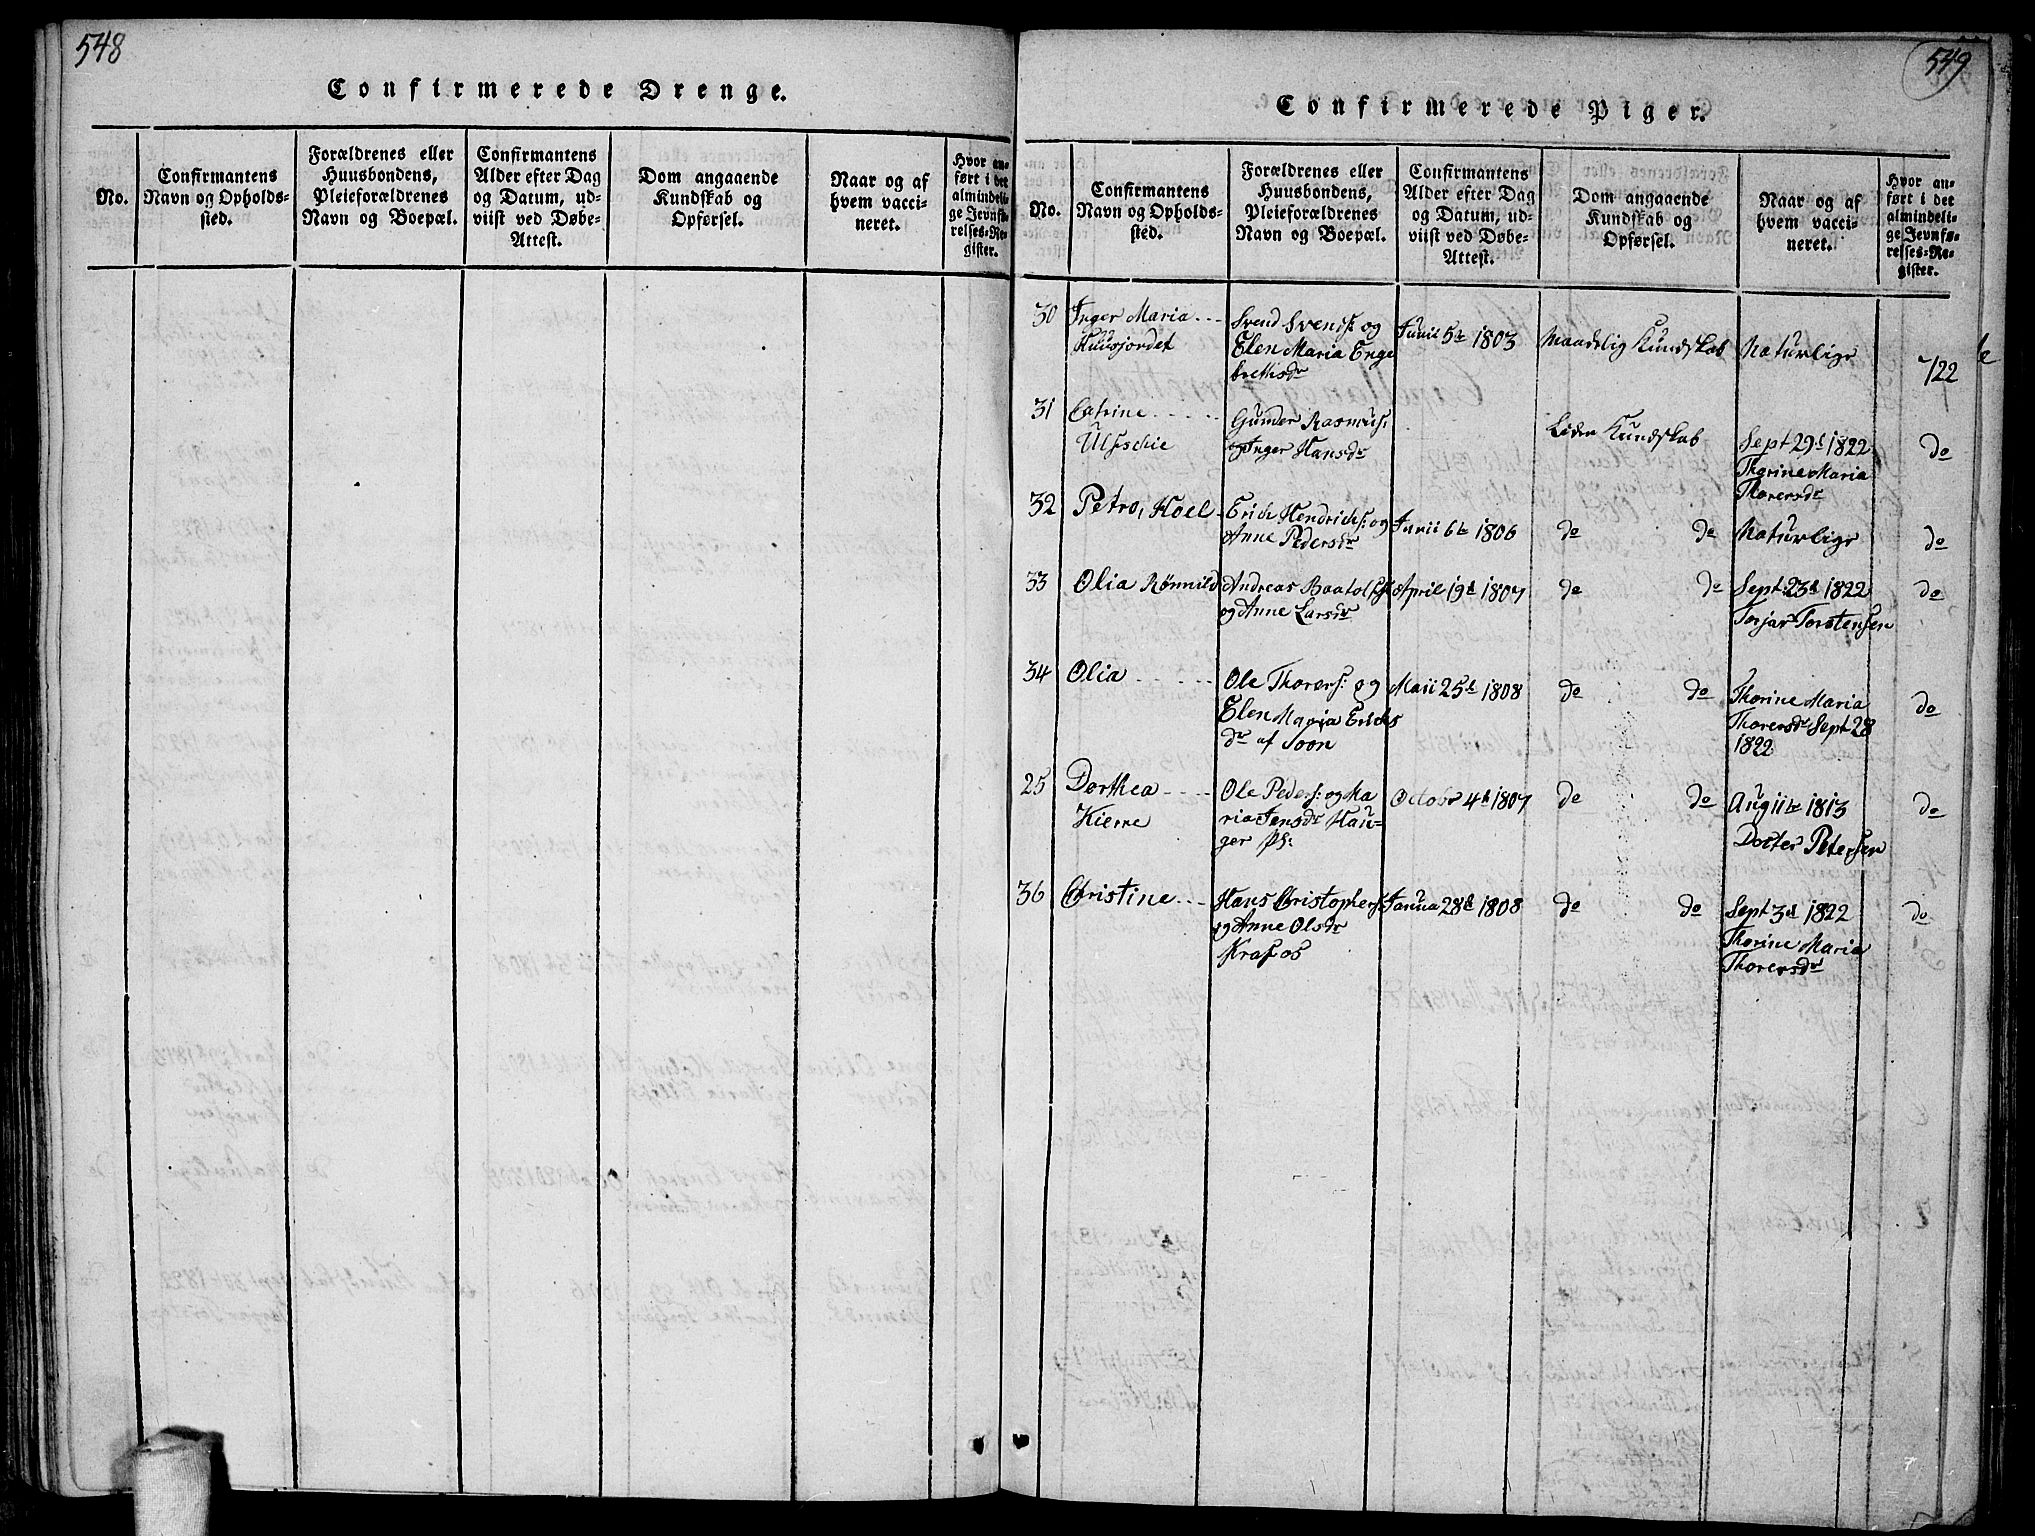 548
Confirmerede Drenge.
No.
Confirmantens
Navn og Opholds-
sted.
Forældrenes eller
Huusbondens,
Pleieforældrenes
Navn og Boepæl.
Confirmantens
Alder efter Dag
og Datum, ud-
viist ved Døbe-
Attest.
Dom angaaende
Kundskab og
Opførsel.
Naar og af
hvem vacci-
neret.
Hvor an-
ført i det
almindeli-
ge Jevnfø-
relses-Re-
gister.
549
Confirmerede Piger.
No.
Confirmantens
Navn og Opholds-
sted.
Forældrenes eller
Huusbondens,
Pleieforældrenes
Navn og Boepæl.
Confirmantens
Alder efter Dag
og Datum, ud-
viist ved Døbe-
Attest.
Dom angaaende
Kundskab og
Opførsel.
Naar og af
hvem vacci-
neret.
Hvor an-
ført i det
almindeli-
ge Jevnfø-
relses-Re-
gister.
30
Inger Maria
Huusjordet
Svend Svends: og
Elen Maria Enge
brethsdr
Junii 5te 1803
Maadelig Kundskab
Naturlige
722
31
Catrine
Gunder Rasmus:
og Inger Hansdr
Liden Kundskab
Sept 29d 1822
Thorine Maria
Thorersdr
do
32
Petro, Hoel
Erich Hendrichs: og
Anne Pedersdr
Junii 6te 1806
do do
Naturlige
do
33
Olia Rønnild
Andreas
og Anne Larsdr
April 19d 1807
do do
Sept 23d 1822
Torjar Torstensen
do
34
Olia
Ole Thorers: og
Elen Maria Erichs
dr af Soon
Maii 25d 1808
do do
Thorine Maria
Thorersdr Sept 28
1822
do
25
Dorthea
Kierre
Ole Peders: og Ma
ria Jensdr Hau-
ger Ps:
Octobr 4d 1807
do do
Aug 11te 1813
Docter Petersen
do
36
Christine
Hans Christophers:
og Anne Olsdr
Krafos
Janua 28d 1808
do do
Sept 3d 1822
Thorine Maria
Thorersdr
do